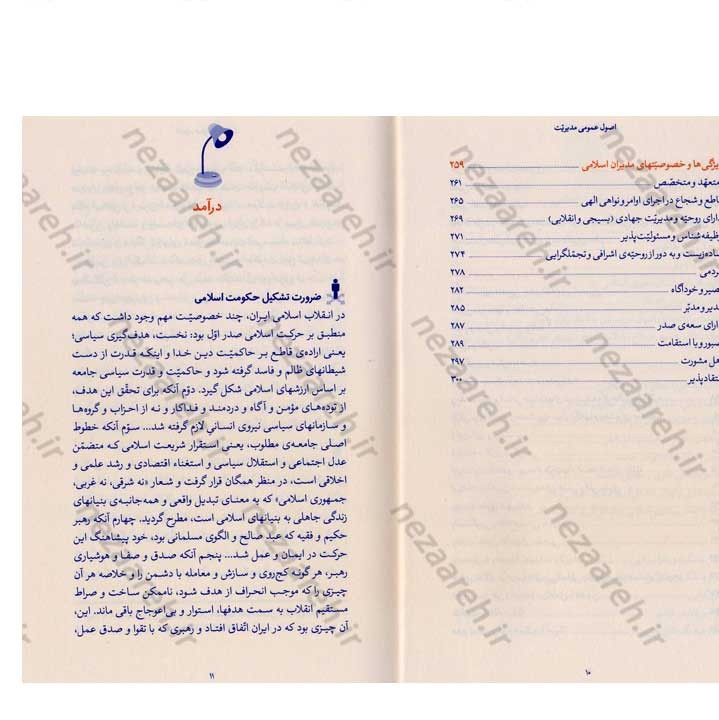 اصول عمومی مدیریّت
یژگی‌ها و خصوصیّتهای مدیران اسلامی ۲۵۹
متعهّد و متخصّص ۲۶۱
اطع و شجاع در اجرای اوامر و نواهی الهی ۲۶۵
ارای روحیّه و مدیریّت جهادی (بسیجی و انقلابی) ۲۶۹
ظیفه‌شناس و مسئولیّت‌پذیر ۲۷۱
ساده‌زیست و به دور از روحیّه‌ی اشرافی و تجمّلگرایی ۲۷۴
ردمی ۲۷۸
صیر و خودآگاه ۲۸۲
دیر و مدبّر ۲۸۵
ارای سعه‌ی صدر ۲۸۷
صبور و با استقامت ۲۸۹
هل مشورت ۲۹۷
نتقادپذیر ۳۰۰
۱۰
درآمد
ضرورت تشکیل حکومت اسلامی
در انقلاب اسلامی ایران، چند خصوصیّت مهم وجود داشت که همه
منطبق بر حرکت اسلامی صدر اوّل بود: نخست، هدف‌گیری سیاسی؛
یعنی اراده‌ی قاطع بر حاکمیّت دین خدا و اینکه قدرت از دست
شیطانهای ظالم و فاسد گرفته شود و حاکمیّت و قدرت سیاسی جامعه
بر اساس ارزشهای اسلامی شکل گیرد. دوّم آنکه برای تحقّق این هدف،
از توده‌های مؤمن و آگاه و دردمند و فداکار و نه از احزاب و گروه‌ها
و سازمانهای سیاسی نیروی انسانی لازم گرفته شد... سوّم آنکه خطوط
اصلی جامعه‌ی مطلوب، یعنی استقرار شریعت اسلامی که متضمّن
عدل اجتماعی و استقلال سیاسی و استغناء اقتصادی و رشد علمی و
اخلاقی است، در منظر همگان قرار گرفت و شعار «نه شرقی، نه غربی،
جمهوری اسلامی» که به معنای تبدیل واقعی و همه‌جانبه‌ی بنیانهای
زندگی جاهلی به بنیانهای اسلامی است، مطرح گردید. چهارم آنکه رهبر
حکیم و فقیه که عبد صالح و الگوی مسلمانی بود، خود پیشاهنگ این
حرکت در ایمان و عمل شد... پنجم آنکه صدق و صفا و هوشیاری
رهبر، هر گونه کج‌روی و سازش و معامله با دشمن را و خلاصه هر آن
چیزی را که موجب انحراف از هدف شود، ناممکن ساخت و صراط
مستقیم انقلاب به سمت هدفها، استوار و بی‌اعوجاج باقی ماند. این،
آن چیزی بود که در ایران اتّفاق افتاد و رهبری که با تقوا و صدق عمل،
۱۱
nezaareh.ir
nezaareh.ir
nezaareh.ir
nezaareh.ir
nezaareh.ir
nezaareh.ir
nezaareh.ir
nezaareh.ir